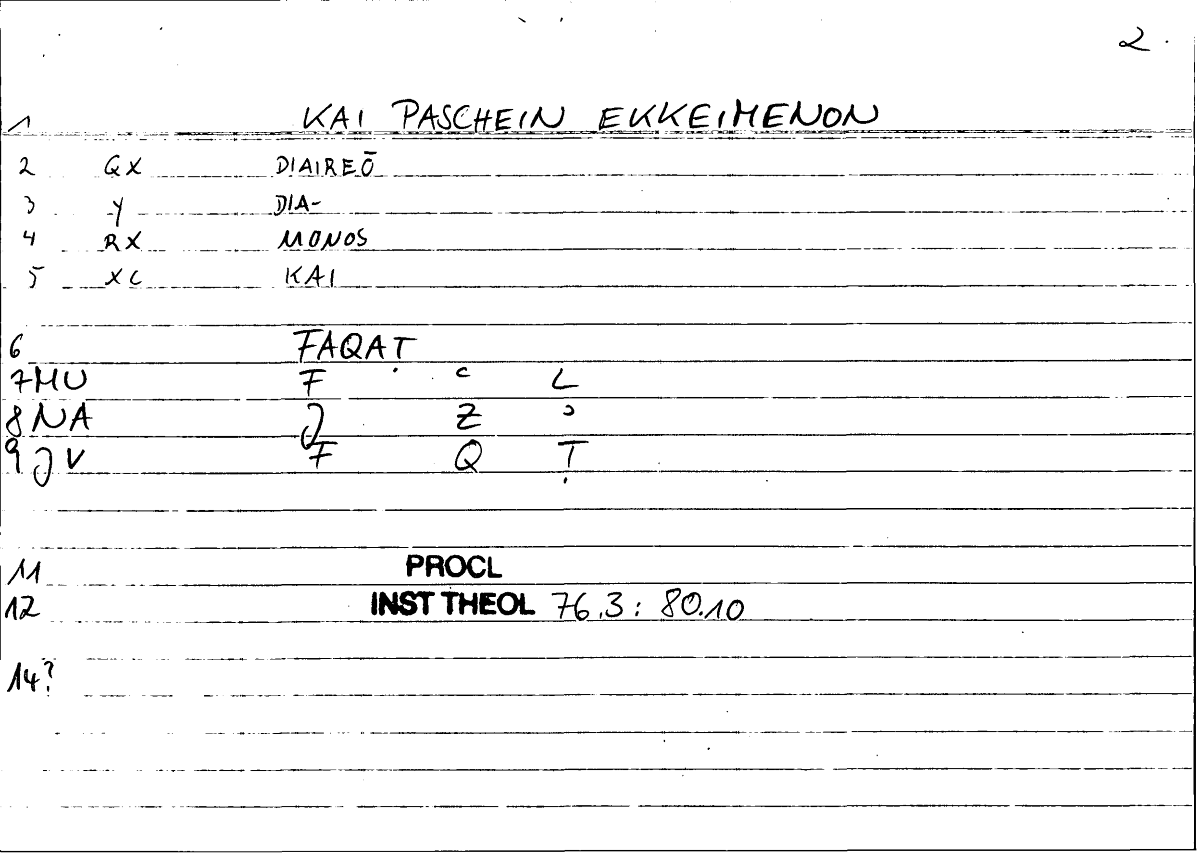 2.
1 KAI PASCHEIN EKKEIMENON
2 QX DIAIREŌ
3 Y DIA-
4 RX MONOS
5 XC KAI
6 FAQAṬ
7 MU F ʿ L
8 NA J Z ʾ
9 JV F Q Ṭ
11 PROCL
12 INST THEOL 76.3 : 80.10
14?